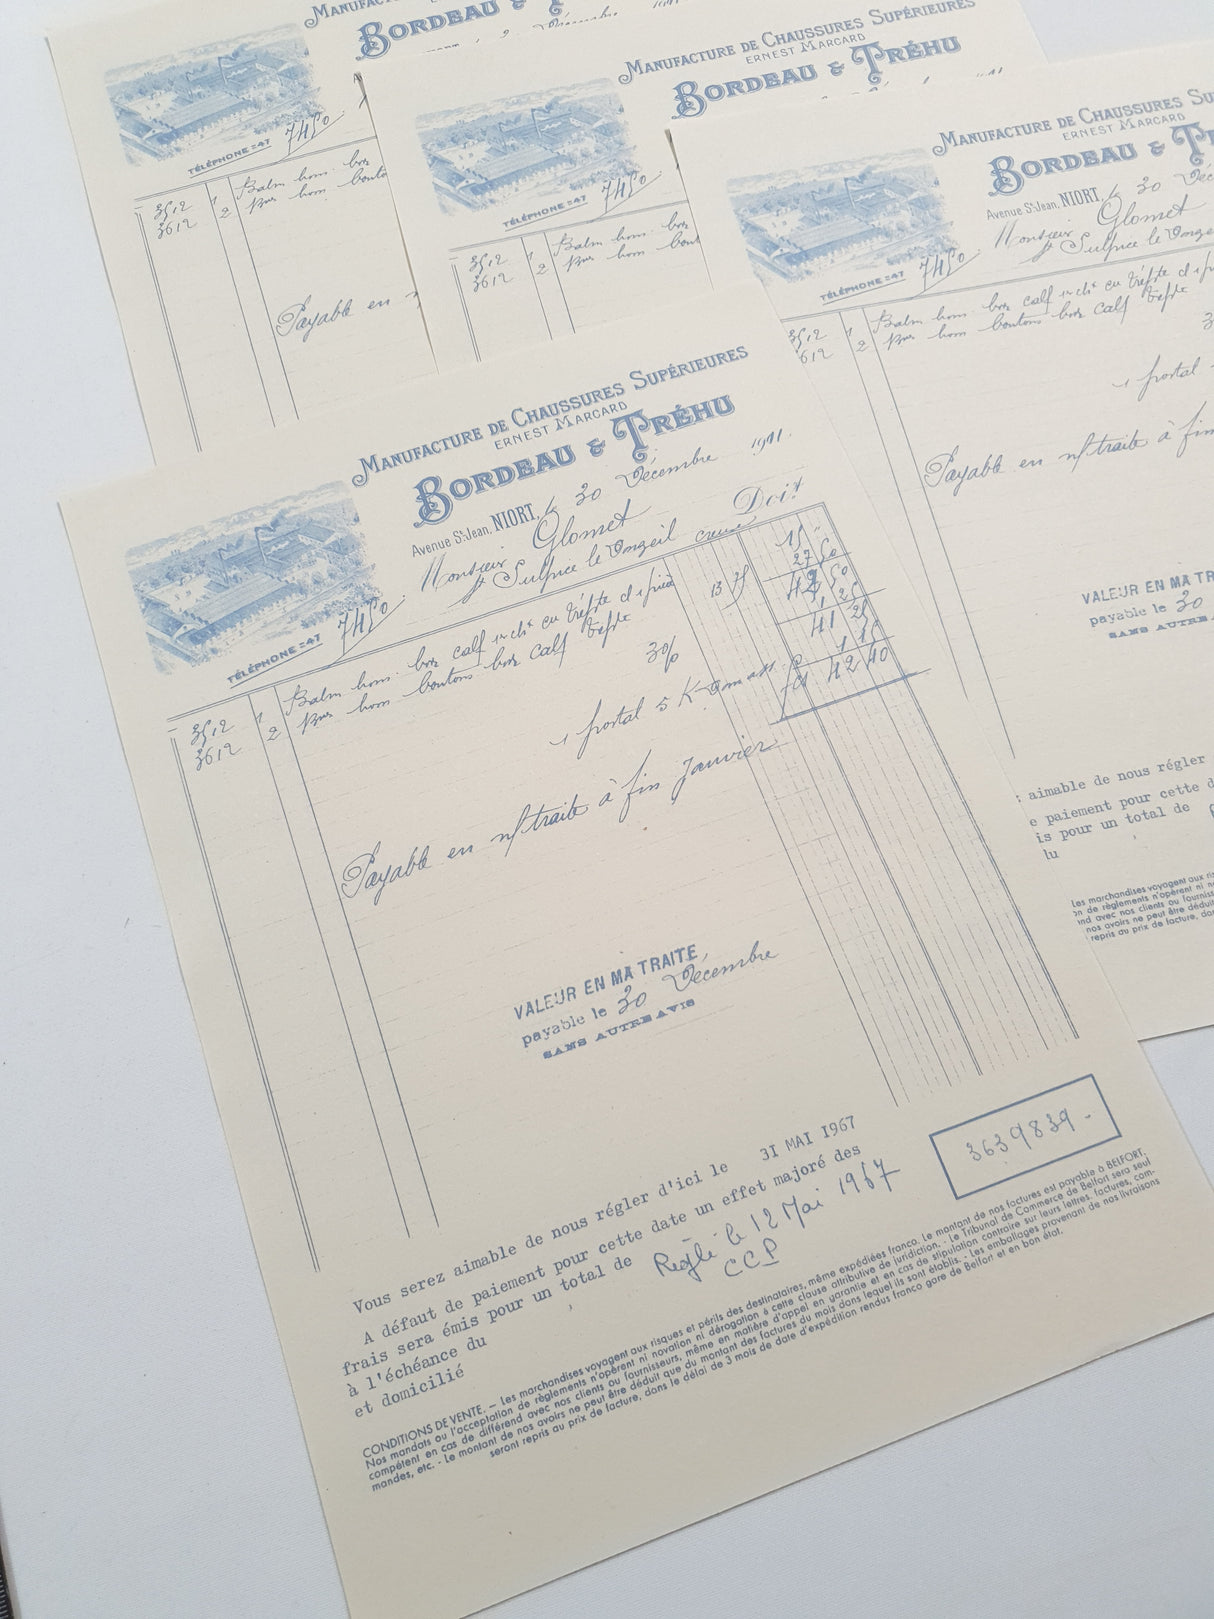 MANUFACTURE
BORDEAU &
Décembre
TÉLÉPHONE = 47
7450
3512 1 Balm hom. box
3612 2 hom bouto
Payable en
MANUFACTURE DE CHAUSSURES SUPÉRIEURES
ERNEST MARCARD
BORDEAU & TRÉHU
TÉLÉPHONE = 47
7450
3512 1 Balm hom. box
3612 2 hom bout
MANUFACTURE DE CHAUSSURES SU
ERNEST MARCARD
BORDEAU & TR
Avenue St Jean, NIORT, le 30 Déc
Monsieur Glomet
St Sulpice le
TÉLÉPHONE = 47
7450
3512 1 Balm hom. box calf
3612 2 hom boutons box calf
postal
Payable en n/traite à fin
VALEUR EN MA TR
payable le 30
SANS AUTRE A
aimable de nous régler
e paiement pour cette d
is pour un total de
lu
Les marchandises voyagent aux ris
on de règlements n'opèrent ni no
nd avec nos clients ou fourniss
nos avoirs ne peut être déduit
repris au prix de facture, da
MANUFACTURE DE CHAUSSURES SUPÉRIEURES
ERNEST MARCARD
BORDEAU & TRÉHU
Avenue St Jean, NIORT, le 30 Décembre 1911.
Monsieur Glomet
St Sulpice le Doit
TÉLÉPHONE = 47
7450
3512 1 Balm hom. box calf 15
3612 2 hom boutons box calf 13 75 27 50
42 50
3% 1 25
41 25
postal 5 K 1 15
42 40
Payable en n/traite à fin Janvier
VALEUR EN MA TRAITE,
payable le 30 Décembre
SANS AUTRE AVIS
3639839-
Vous serez aimable de nous régler d'ici le 31 MAI 1967
A défaut de paiement pour cette date un effet majoré des
frais sera émis pour un total de Réglé le 12 Mai 1967
à l'échéance du CCP
et domicilié
CONDITIONS DE VENTE. – Les marchandises voyagent aux risques et périls des destinataires, même expédiées franco. Le montant de nos factures est payable à BELFORT.
Nos mandats ou l'acceptation de règlements n'opèrent ni novation ni dérogation à cette clause attributive de juridiction. - Le Tribunal de Commerce de Belfort sera seul
compétent en cas de différend avec nos clients ou fournisseurs, même en matière d'appel en garantie et en cas de stipulation contraire sur leurs lettres, factures, com-
mandes, etc. - Le montant de nos avoirs ne peut être déduit que du montant des factures du mois dans lequel ils sont établis. - Les emballages provenant de nos livraisons
seront repris au prix de facture, dans le délai de 3 mois de date d'expédition rendus franco gare de Belfort et en bon état.